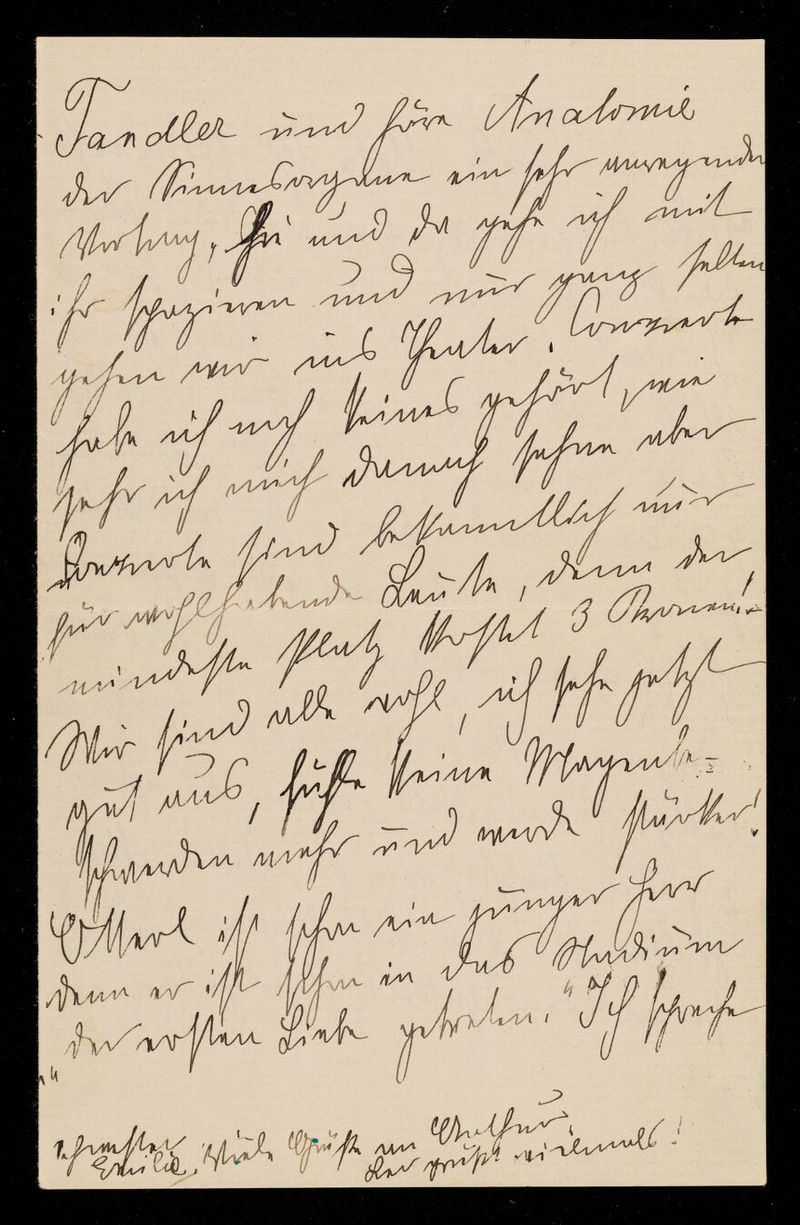 Tandler und höre Anatomie
der Sinnesorgane ein sehr anregender
Vortrag, Hie und da gehe ich mit
ihr spazieren und nur ganz selten
gehen wir ins Theater. Conzerte
habe ich noch keines gehört, wie
sehr ich mich darnach sehne aber
Conzerte sind bekanntlich nur
für wohlhabende Leute, denn der
mindeste Platz kostet 3 Kronen!
Wir sind alle wohl, ich sehe jetzt
gut aus, fühle keine Magenbe-
schwerden mehr und werde stärker!
Otterl ist schon ein junger Herr
denn er ist schon in das Stadium
„der ersten Liebe getreten." Ich spreche
Schwester
Emilie. Viele Grüße an Arthur.
Leo grüßt vielmals!